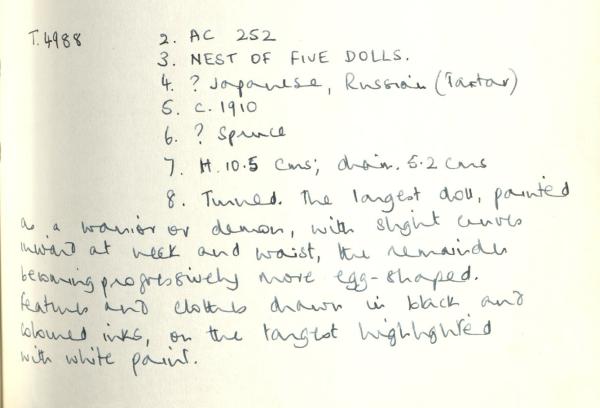 T.4988 2. AC 252
3. NEST OF FIVE DOLLS.
4. ? Japanese, Russian (Tartar)
5. c. 1910
6. ? Spruce
7. H. 10.5 cms; diam. 5.2 cms
8. Turned. The largest doll, painted
as a warrior or demon, with slight curves
inward at neck and waist, the remainder
becoming progressively more egg-shaped.
Features and clothes drawn in black and
coloured inks, on the largest highlighted
with white paint.